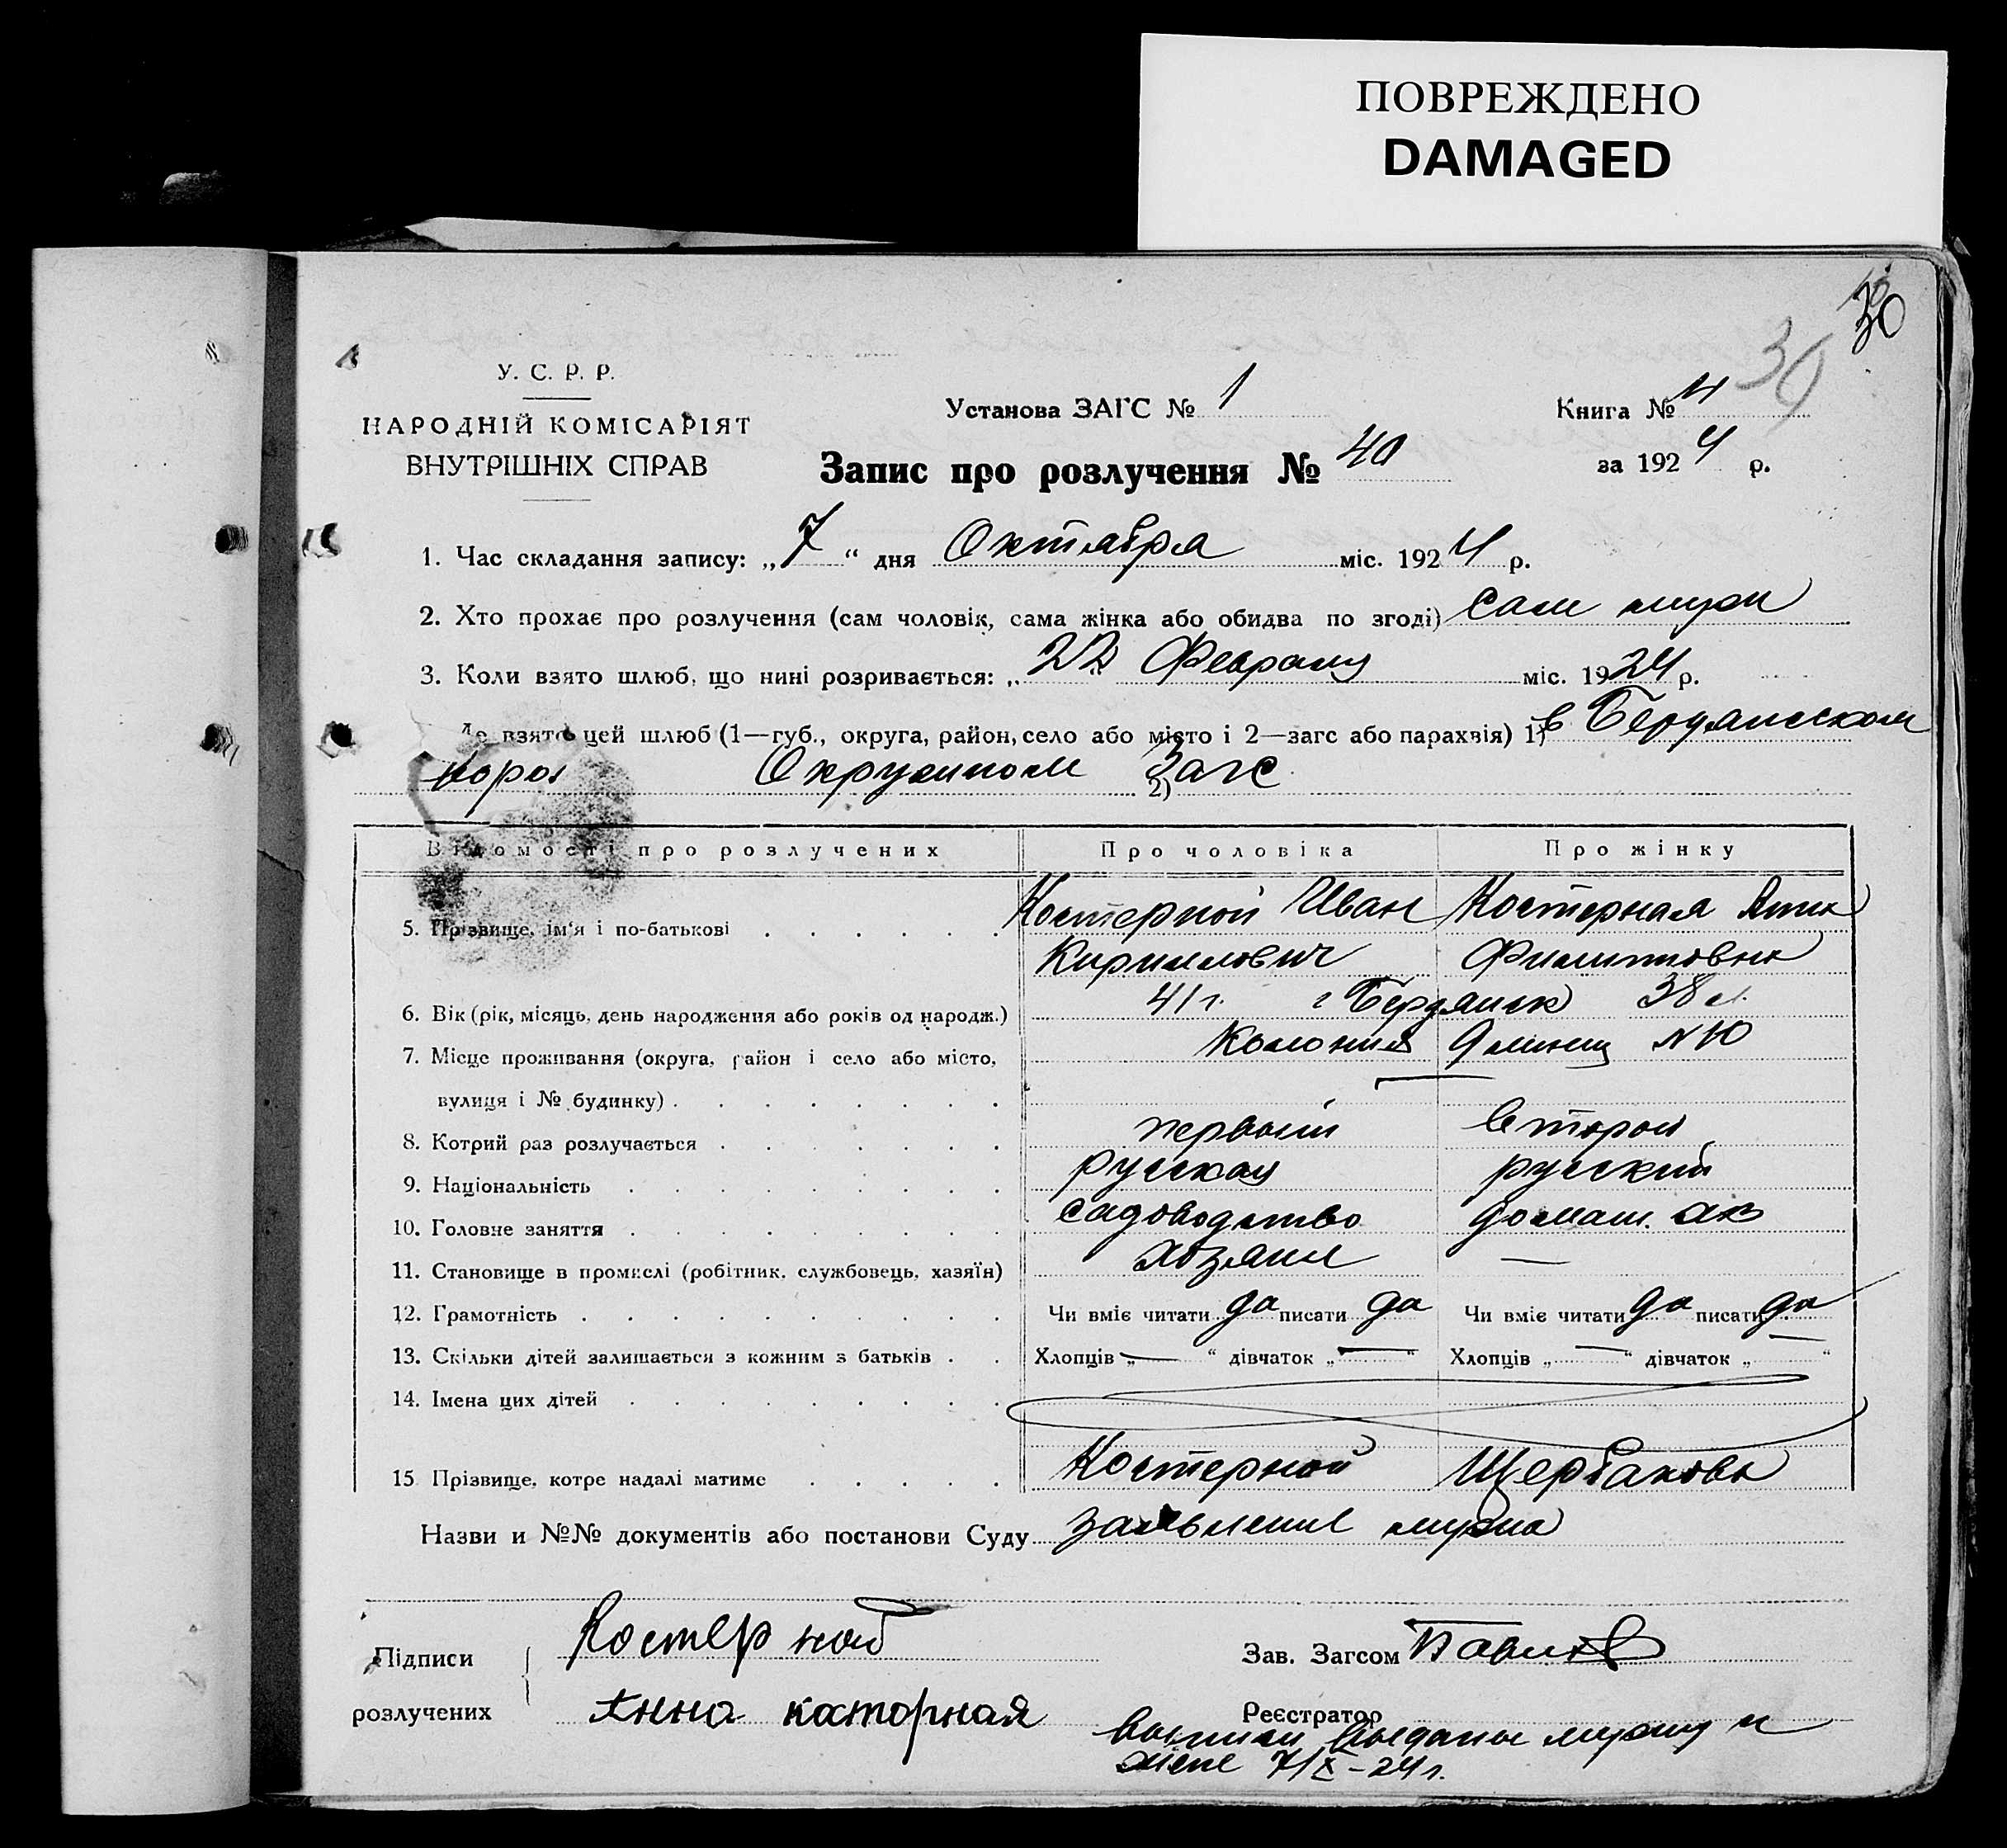 ПОВРЕЖДЕНО
DAMAGED
30
30
У. С. Р. Р.
НАРОДНІЙ КОМІСАРІЯТ
ВНУТРІШНІХ СПРАВ
Установа ЗАГС № 1
Книга № 4
за 1924 р.
Запис про розлучення № 40
1. Час складання запису: „7“ дня Октября міс. 1924 р.
2. Хто прохає про розлучення (сам чоловік, сама жінка або обидва по згоді) сам муж
3. Коли взято шлюб, що нині розривається: „22“ Февраля міс. 1924 р.
Де взято цей шлюб (1—губ., округа, район, село або місто і 2—загс або парахвія) 1) в Бердянском
Окружном 2) Загс
Відомості про розлучених Про чоловіка Про жінку
5. Прізвище, ім'я і по-батькові . . . . . . Костерной Иван Костерная Анна
Кириллович Филипповна
6. Вік (рік, місяць, день народження або років од народж.) 41 г. г Бердянск 38 л.
7. Місце проживання (округа, район і село або місто, Колония
вулиця і № будинку) . . . . . . . .
8. Котрий раз розлучається . . . . . . . первый второй
9. Національність . . . . . . . . . русская русский
10. Головне заняття . . . . . . . . . садоводство домаш. хоз
11. Становище в промислі (робітник, службовець, хазяїн) хозяин —
12. Грамотність . . . . . . . . . . Чи вміє читати да писати да Чи вміє читати да писати да
13. Скільки дітей залишається з кожним з батьків . . Хлопців „—“ дівчаток „—“ Хлопців „—“ дівчаток „—“
14. Імена цих дітей . . . . . . . . .
15 Прізвище, котре надалі матиме . . . . . Костерной Щербакова
Назви и №№ документів або постанови Суду заявление мужа
Підписи Костерной Зав. Загсом
розлучених Анна касторная Реєстратор
выписи выданы мужу и
жене 7/X-24 г.